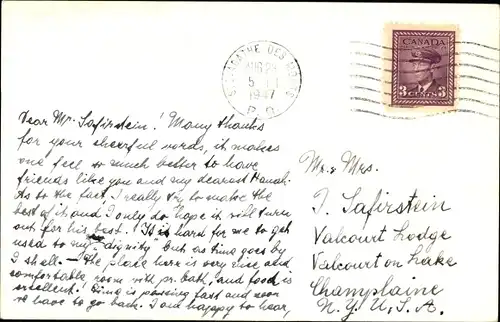 STE. AGATHE DES MONTS
AUG 29
5
1947
P.Q.
CANADA
3 CENTS 3
Dear Mr. Safirstein! Many thanks
for your cheerful words, it makes
one feel so much better to have
friends like you and my dearest
As to the fact, I really try to make the
best of it and I only do hope it will turn
out for his best. It is hard for me to get
used to my "dignity" but as time goes by
I shall. - The place here is very nice and
comfortable room with pr. bath, and food is
excellent! Time is passing fast and soon
we have to go back. I am happy to hear,
Mr. & Mrs.
J. Safirstein
Valcourt Lodge
Valcourt on Lake
Champlaine
N.Y. U.S.A.